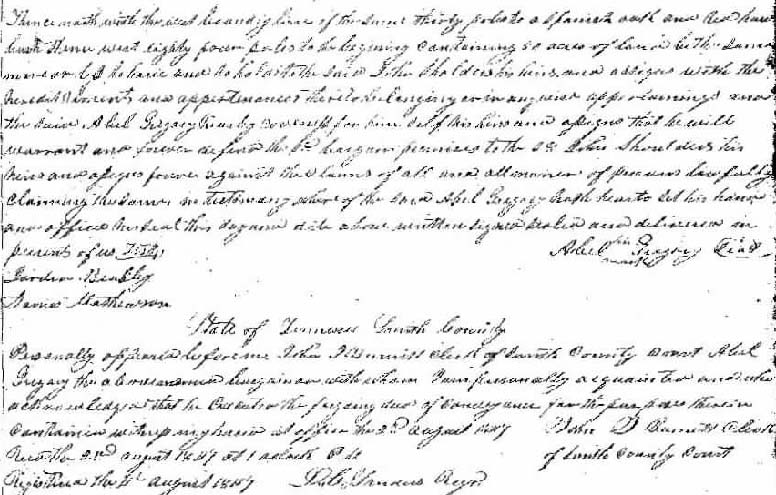 Thence north with the west boundry line of the same thirty poles to a spanish oak and Red
bush Thence west eighty four poles to the begining containing 50 acres of land be the same
more or less to have and to hold to the said John Sholders his hirs and assigns with the
heredit aments and appertenances thereto belonging or in any wise appertaining and
the said Abel Gregory doth covenant for him self his hirs and assigns that he will
warrant and forever defend the sd bargain premises to the sd John Shoulders his
hirs and assigns forever against the claims of all and all manner of persons lawfully
claiming the same in testimony where of the said Abel Gregory hath hearto set his hand
and affixed his seal this day and date above written signed sealed and delivered in
presents of us Test
Abel his mark Gregory Seal
Mathewson
State of Tennessee Smith County
Personally appeared before me John Clerk of Smith County Court Abel
Gregory the above named bargainor with whom I am personally acquainted and who
acknowledged that he executed the forgoing deed of conveyance for the purposes therein
contained witness my hand at office the 2nd august 1847
John Clerk
of Smith County Court
Recd the 2nd august 1847 at 1 oclock P M
Registered the august 1847
Regr